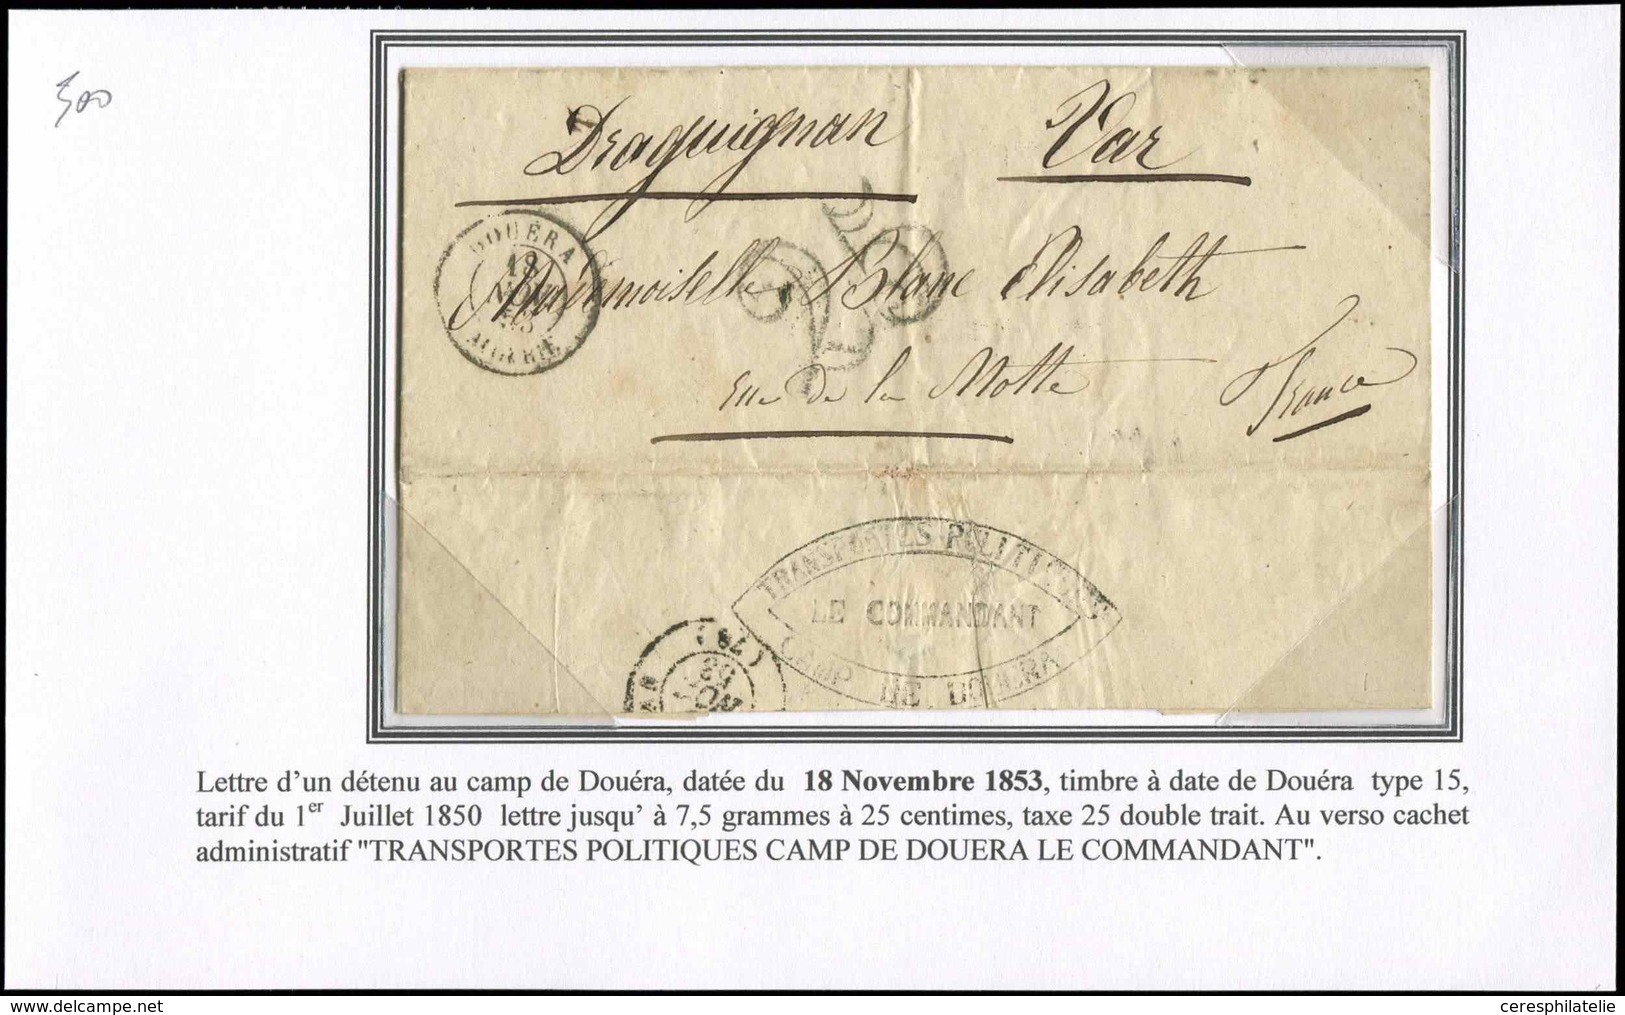 500
Draguignan Var
DOUÉRA
18
ALGÉRIE
Mademoiselle Blanc Elisabeth
25
rue de la Motte
France
TRANSPORTES POLITIQUES
LE COMMANDANT
CAMP DE DOUERA
(78)
Lettre d’un détenu au camp de Douéra, datée du 18 Novembre 1853, timbre à date de Douéra type 15,
tarif du 1er Juillet 1850 lettre jusqu’ à 7,5 grammes à 25 centimes, taxe 25 double trait. Au verso cachet
administratif "TRANSPORTES POLITIQUES CAMP DE DOUERA LE COMMANDANT".
delcampe.net
ceresphilatelie